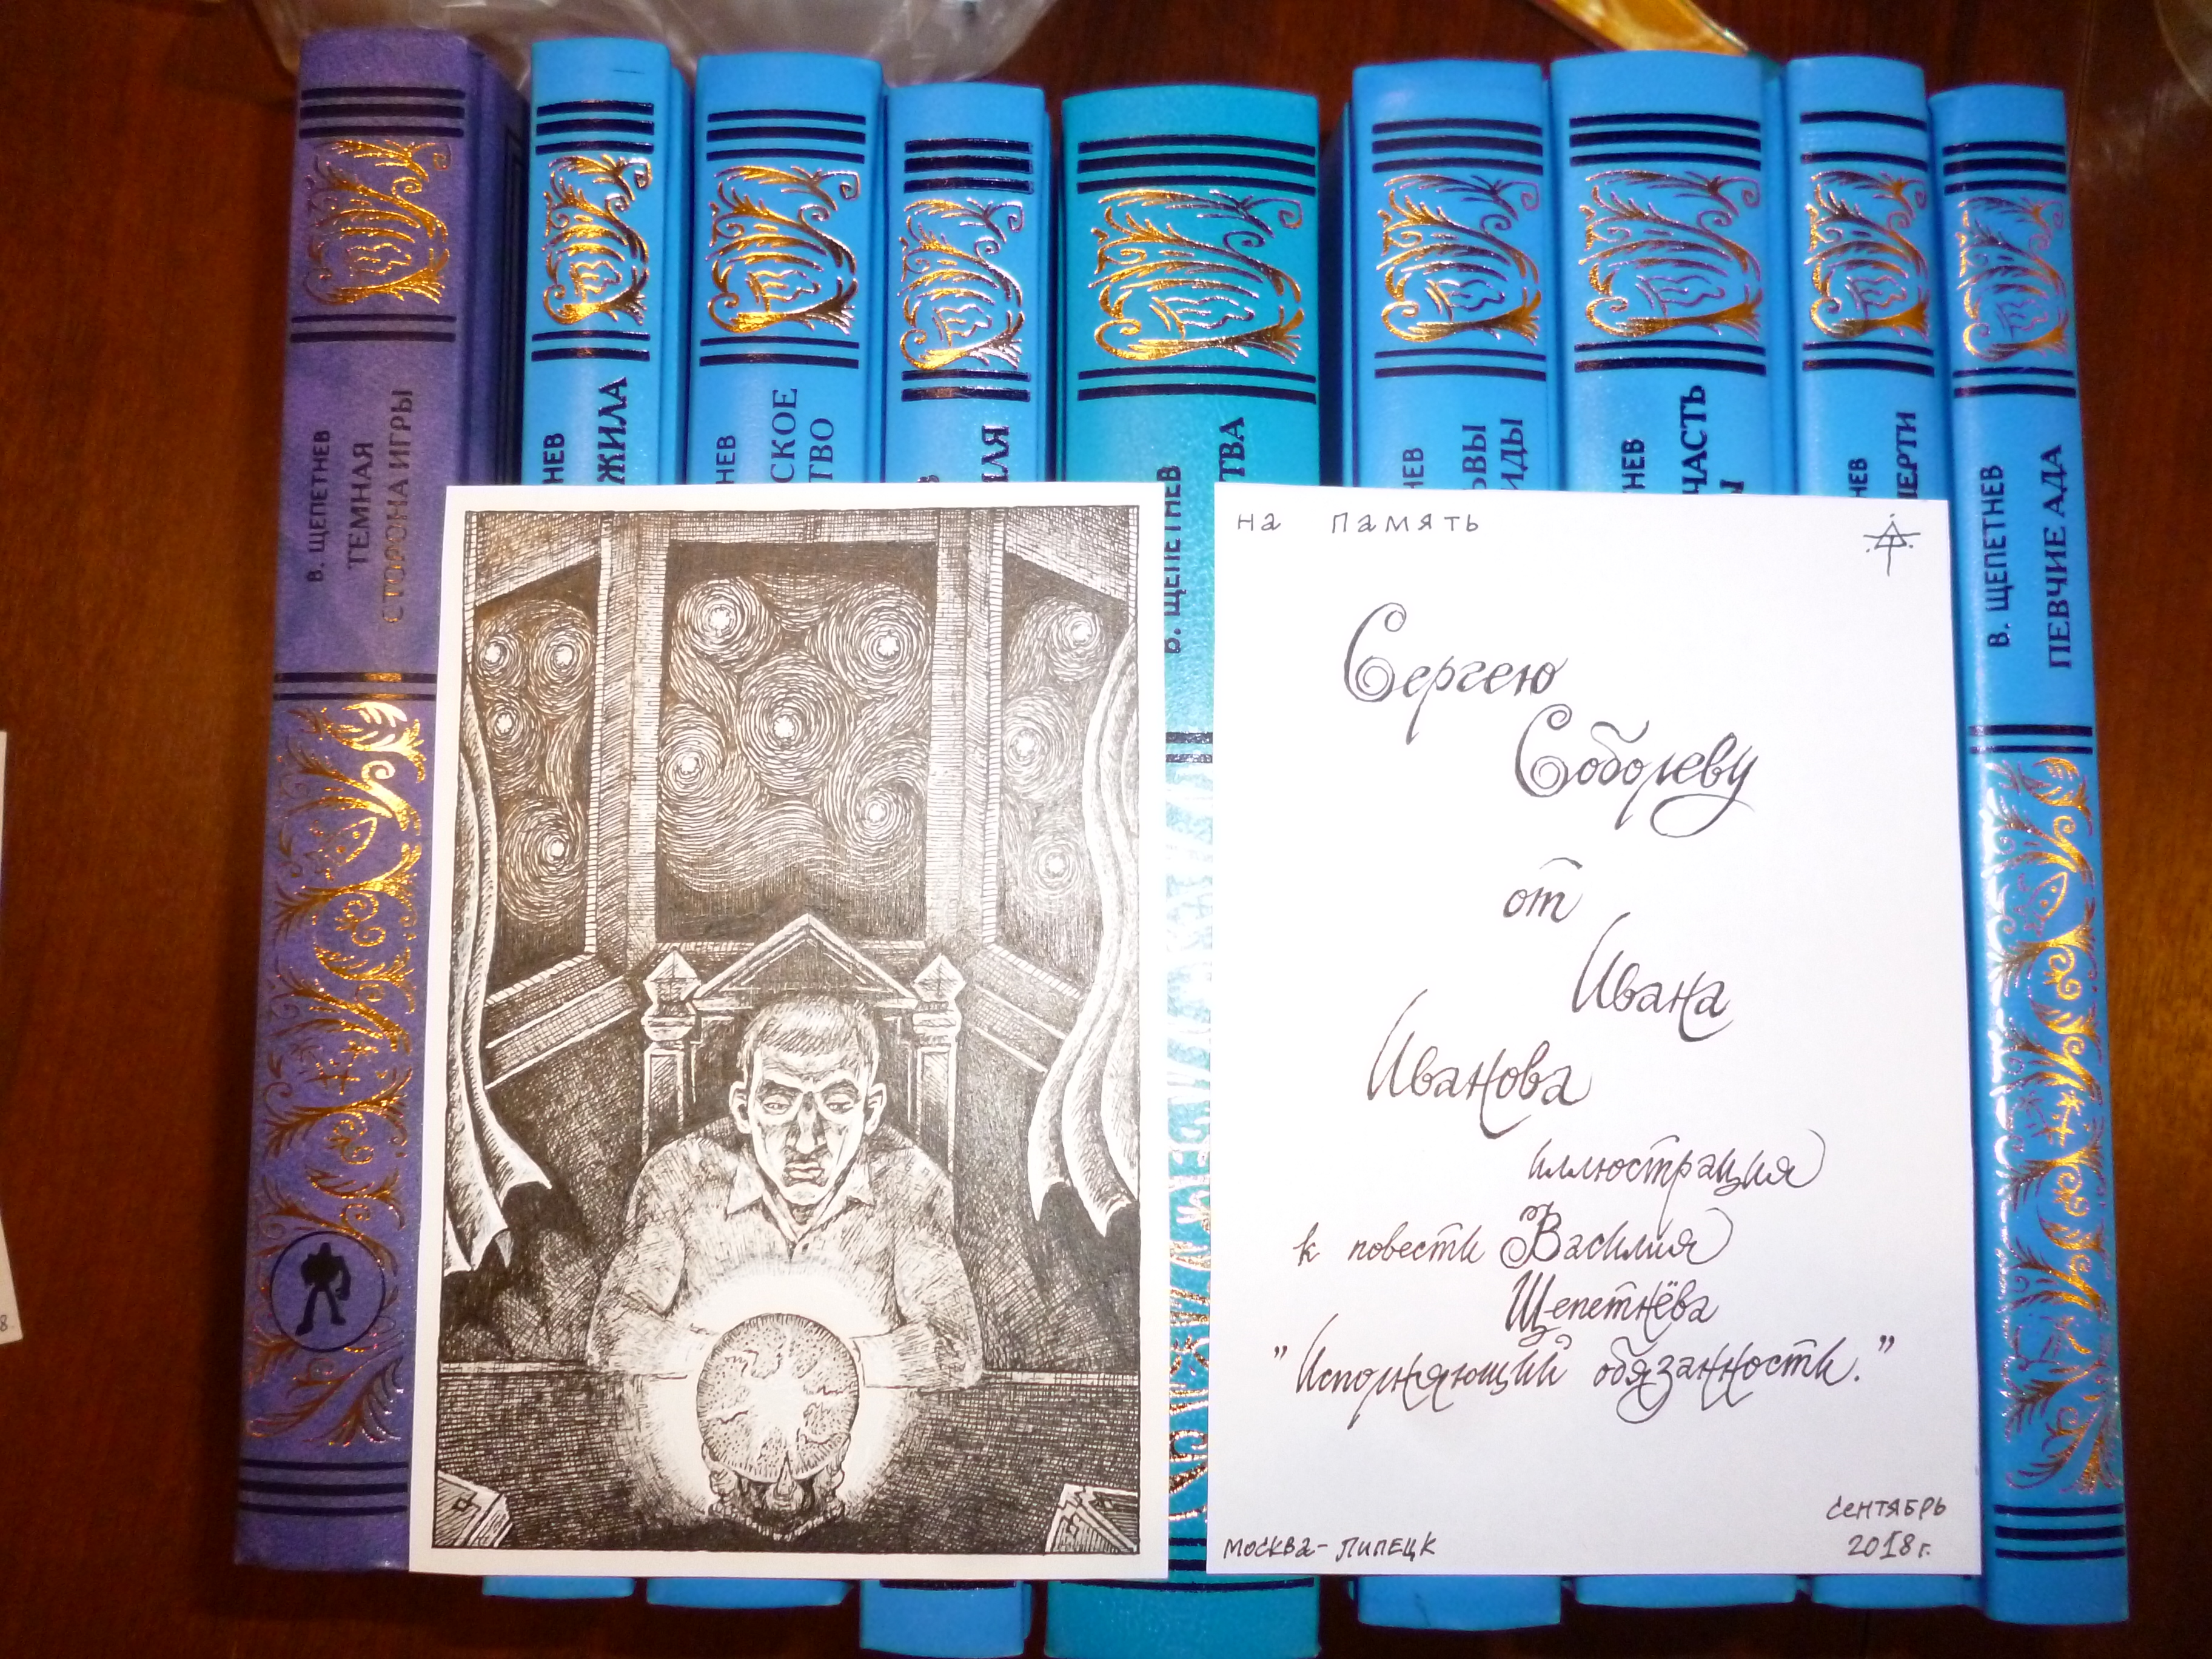 В. ЩЕПЕТНЕВ
ТЕМНАЯ
СТОРОНА ИГРЫ
НЕВ
ЖИЛА
НЕВ
СКОЕ
ТВО
В
ИЛЯ
В. ЩЕПЕТНЕВ
ТВА
НЕВ
ЬВЫ
ИДЫ
НЕВ
ЧАСТЬ
Ы
НЕВ
МЕРТИ
В. ЩЕПЕТНЕВ
ПЕВЧИЕ АДА
на память
Сергею
Соболеву
от
Ивана
Иванова
иллюстрация
к повести Василия
Щепетнёва
"Исполняющий обязанности."
Москва-Липецк
сентябрь
2018 г.
8